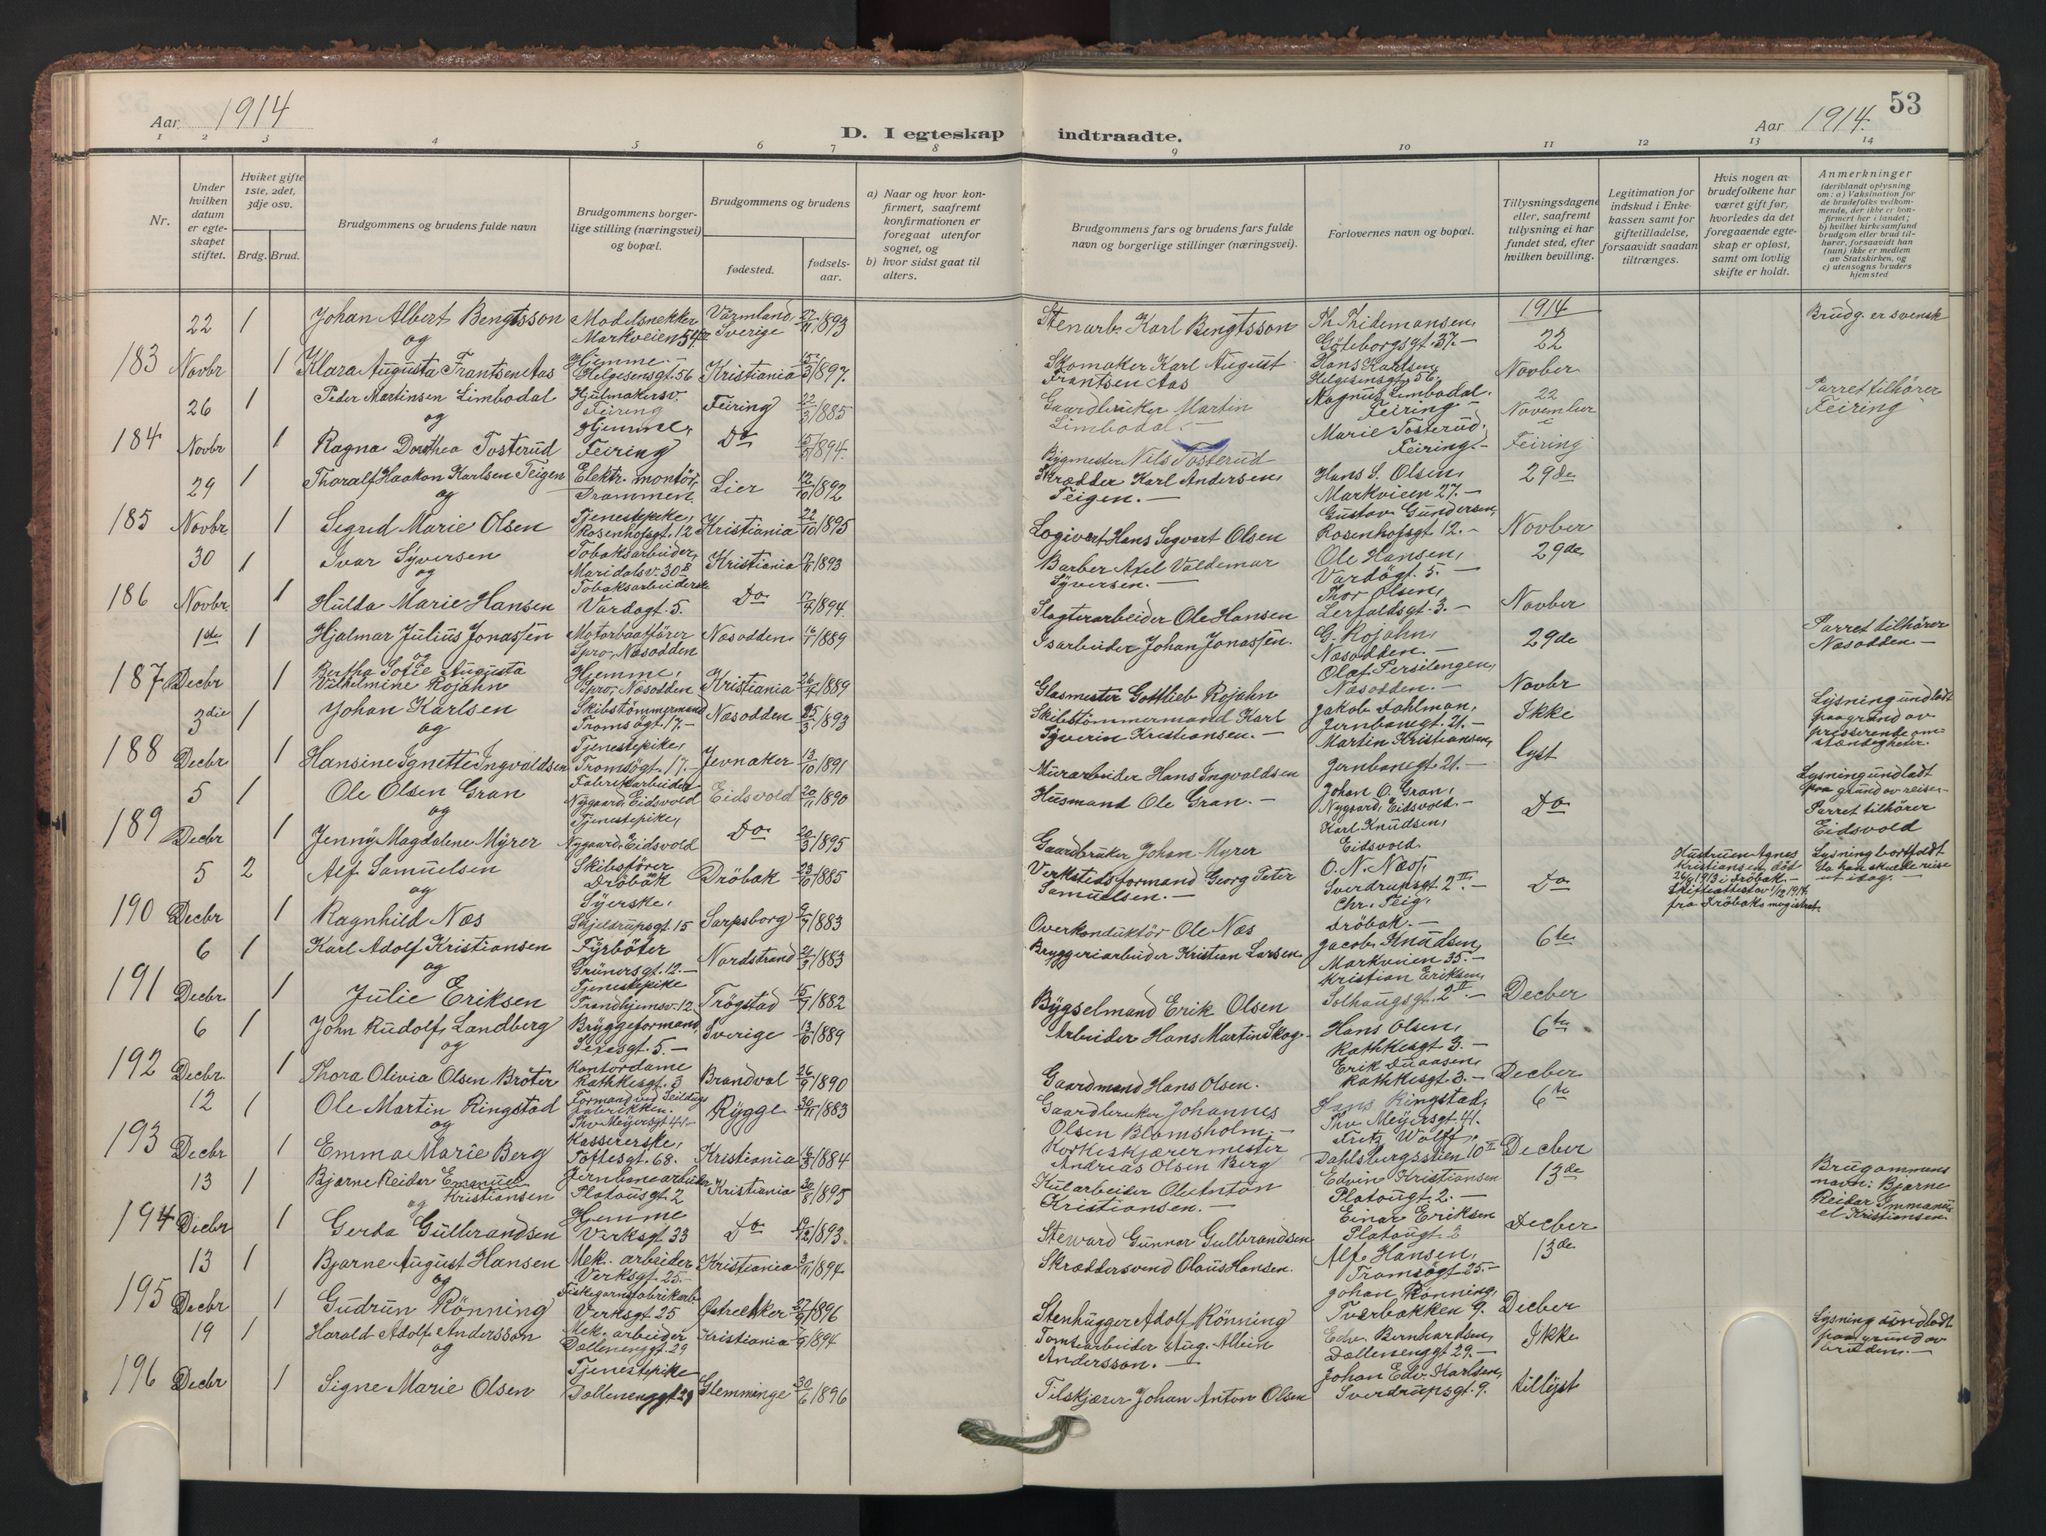 Aar 1914
D. I egteskap indtraadte.
Aar 1914.
53
1 2 3 4 5 6 7 8 9 10 11 12 13 14
Nr.
Under hvilken datum er egteskapet stiftet.
Hviket gifte 1ste, 2det, 3dje osv.
Brdg. Brud.
Brudgommens og brudens fulde navn
Brudgommens borgerlige stilling (næringsvei) og bopæl.
Brudgommens og brudens
fødested.
fødselsaar.
a) Naar og hvor konfirmert, saafremt konfirmationen er foregaat utenfor sognet, og
b) hvor sidst gaat til alters.
Brudgommens fars og brudens fars fulde navn og borgerlige stillinger (næringsvei).
Forlovernes navn og bopæl.
Tillysningsdagene eller, saafremt tillysning ei har fundet sted, efter hvilken bevilling.
Legitimation for indskud i Enkekassen samt for giftetilladelse, forsaavidt saadan tiltrænges.
Hvis nogen av brudefolkene har været gift før, hvorledes da det foregaaende egteskap er opløst, samt om lovlig skifte er holdt.
Anmerkninger
(deriblandt oplysning om: a) Vaksination for de brudefolks vedkommende, der ikke er konfirmert her i landet; b) hvilket kirkesamfund brudgom eller brud tilhører, forsaavidt han (hun) ikke er medlem av Statskirken, og c) utensogns bruders hjemsted
183 22 Novbr 1 Johan Albert Bengtsson Modelsnekker Markveien 54 Värmland Sverige 1893 Stenarb. Karl Bengtsson Th. Thidemansen, Göteborgsgt. 37.- 1914 22 Brudg. er svensk
og
1 Klara Augusta Frantsen Aas Hjemme Helgesensgt. 56 Kristiania 1897. Skomaker Karl August Frantsen Aas Hans Karlsen, Helgesensgt. 56, Novber
184 26 Novbr Peder Martinsen Limbodal Hjulmakersv. Feiring Feiring 22/3 1885 Gaardbruker Martin Limbodal.- Magnus Limbodal. Feiring.- 22 November Parret tilhører Feiring
og
1 Ragna Dorthea Tosterud Hjemme, Feiring Do 1894. Bygmester Nils Tosterud Marie Tosterud, Feiring.- i Feiring
185 29 Novbr 1 Thoralf Haakon Karlsen Teigen Elektr. montör, Drammen Lier 12/10 1892 Skrædder Karl Andersen, Teigen.- Hans S. Olsen, Markveien 27.- 29de
og
1 Sigrid Marie Olsen Tjenestepike, Rosenhofsgt. 12 Kristiania 22/10 1895 Logivert Hans Segvert Olsen Gustav Gundersen, Rosenhofsgt. 12.- Novber
186 30 Novbr. 1 Ivar Syversen Tobaksarbeider, Maridalsv. 30 B Kristiania 1893 Barber Axel Valdemar Syversen.- Ole Hansen, Vardögt. 5.- 29de
og
1 Hulda Marie Hansen Tobaksarbeiderske Vardøgt. 5. Do 1894. Slagterarbeider Ole Hansen Thor Olsen, Lerfaldsgt. 3.- Novber
187 1ste Decbr 1 Hjalmar Julius Jonassen Motorbaatfører Spro, Næsodden Næsodden 1889 Isarbeider Johan Jonassen. G. Rojahn, Næsodden.- 29de Parret tilhörer Næsodden.-
og
1 Bertha Sofie Augusta Vilhelmine Rojahn Hjemme, Spro, Næsodden Kristiania 1889 Glasmester Gottlieb Rojahn Olaf Persilengen, Næsodden.- Novbr
188 3die Decbr. Johan Karlsen Skibstömmermand Tromsögt. 17.- Næsodden 1893 Skibstömmermand Karl Syverin Kristiansen.- Jakob Dahlman, Jernbanegt. 21.- Ikke Lysning undladt paa grund av presserende omstændigheter.
og
1 Hansine Ignette Ingvaldsen Tjenestepike, Tromsögt. 17.- Jevnaker 13/10 1891 Murarbeider Hans Ingvaldsen Martin Kristiansen, Jernbanegt. 21.- lyst
189 5 Decbr 1 Ole Olsen Gran Fabrikarbeider Nygaard, Eidsvold Eidsvold 20/11 1890 Husmand Ole Gran.- Johan O. Gran, Nygaard, Eidsvold.- Do Lysning undladt paa grund av reise. Parret tilhörer Eidsvold
og
1 Jenny Magdalene Myrer Tjenestepike, Nygaard, Eidsvold Do 20/3 1895 Gaardbruker Johan Myrer Karl Knudsen, Eidsvold.
190 5 Decbr 2 Alf Samuelsen Skibsförer Dröbak Dröbak 1885 Verkstedsformand Georg Peter Samuelsen.- O. N. Næs, Sverdrupsgt. 2 II.- Do Hustruen Agnes Kristiansen död 1913 i Dröbak.- Skifteattest av 1/12 1914 fra Dröbaks magistrat. Lysning bortfaldt da han skulde reise ut idag.-
og
1 Ragnhild Næs Syerske, Skjeldrupsgt. 15 Sarpsborg 9/7 1883 Overkonduktör Ole Næs Chr. Seig, Dröbak.-
191 6 Decbr. 1 Karl Adolf Kristiansen Fyrböter Grünersgt. 12.- Nordstrand 1883 Bryggeriarbeider Kristian Larsen, Jacob Knudsen, Markveien 35.- 6te
og
1 Julie Eriksen Tjenestepike Trondhjemsv. 12 Trögstad 1882 Bygselmand Erik Olsen Kristian Eriksen, Solhaugsgt. 2 II.- Decber
192 6 Decbr. 1 John Rudolf Landberg Bryggeformand Sexesgt. 5.- Sverige 1889 Arbeider Hans Martin Skog- Hans Olsen, Rathkesgt. 3.- 6te
og
1 Thora Olivia Olsen Broter Kontordame Rathkesgt. 3 Brandval 1890 Gaardmand Hans Olsen. Erik Duaasen, Rathkesgt. 3.- Decber
193 12 Decbr. 1 Ole Martin Ringstad Formand ved Seildugsfabrikken. Thv. Meyersgt 41.- Rygge 30/11 1883 Gaardbruker Johannes Olsen Blomsholm.- Hans Ringstad, Thv. Meyersgt. 41. 6te
og
1 Emma Marie Berg Kassererske, Toftesgt. 68. Kristiania 1884 Korkeskjærermester Andreas Olsen Berg Fritz Wolff, Dahlsbergsstien 10 II Decber
194 13 Decbr 1 Bjarne Reider Emanuel Kristiansen Jernbanearbeider Platougt. 2 Kristiania 1895 Kularbeider Ole Anton Kristiansen.- Edvin Kristiansen Platougt. 2.- 13de Brugommens navn: Bjarne Reidar Immanuel Kristiansen.
og
1 Gerda Gulbrandsen Hjemme Verksgt. 33 Do 1893. Steward Gunnar Gulbrandsen Einar Eriksen Platougt. 2 Decber
195 13 Decbr 1 Bjarne August Hansen Mek. arbeider Verksgt. 25.- Kristiania 3/11 1894 Skræddersvend Olaus Hansen. Alf Hansen, Tromsögt 25.- 13de
og
1 Gudrun Rönning Fiskegarnsfabrikarb. Verksgt. 25 Østre Aker 1896 Stenhugger Adolf Rönning Johan Rönning, Tværbakken 9. Decber
196 19 Decbr 1 Harald Adolf Andersson Mek. arbeider Dællenenggt. 29 Kristiania 1894 Tomtearbeider Aug. Albin Andersson.- Edv. Bernhardsen, Dællenenggt 29.- Ikke Lysning undladt paa grund av bruden.-
og
1 Signe Marie Olsen Tjenestepike Dællenenggt 29 Glemminge 30/6 1896 Tilskjærer Johan Anton Olsen Johan Edv. Karlsen, Sverdrupsgt. 9. tillyst